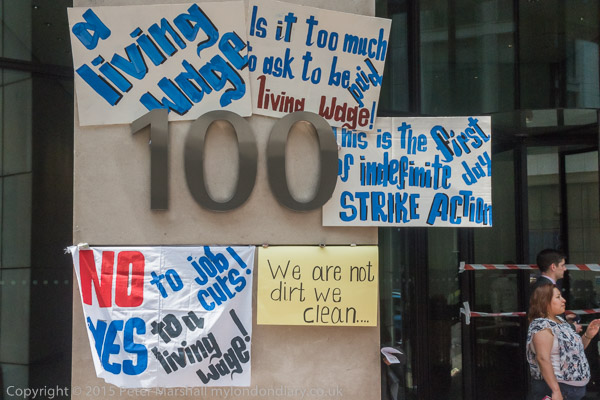 a
living
wage
Is it too much
to ask to be paid
living wage!
100
This is the first
of indefinite day
STRIKE ACTION
NO to job
cuts!
YES to a
living
wage!
We are not
dirt we
clean....
Copyright © 2015 Peter Marshall mylondondiary.co.uk